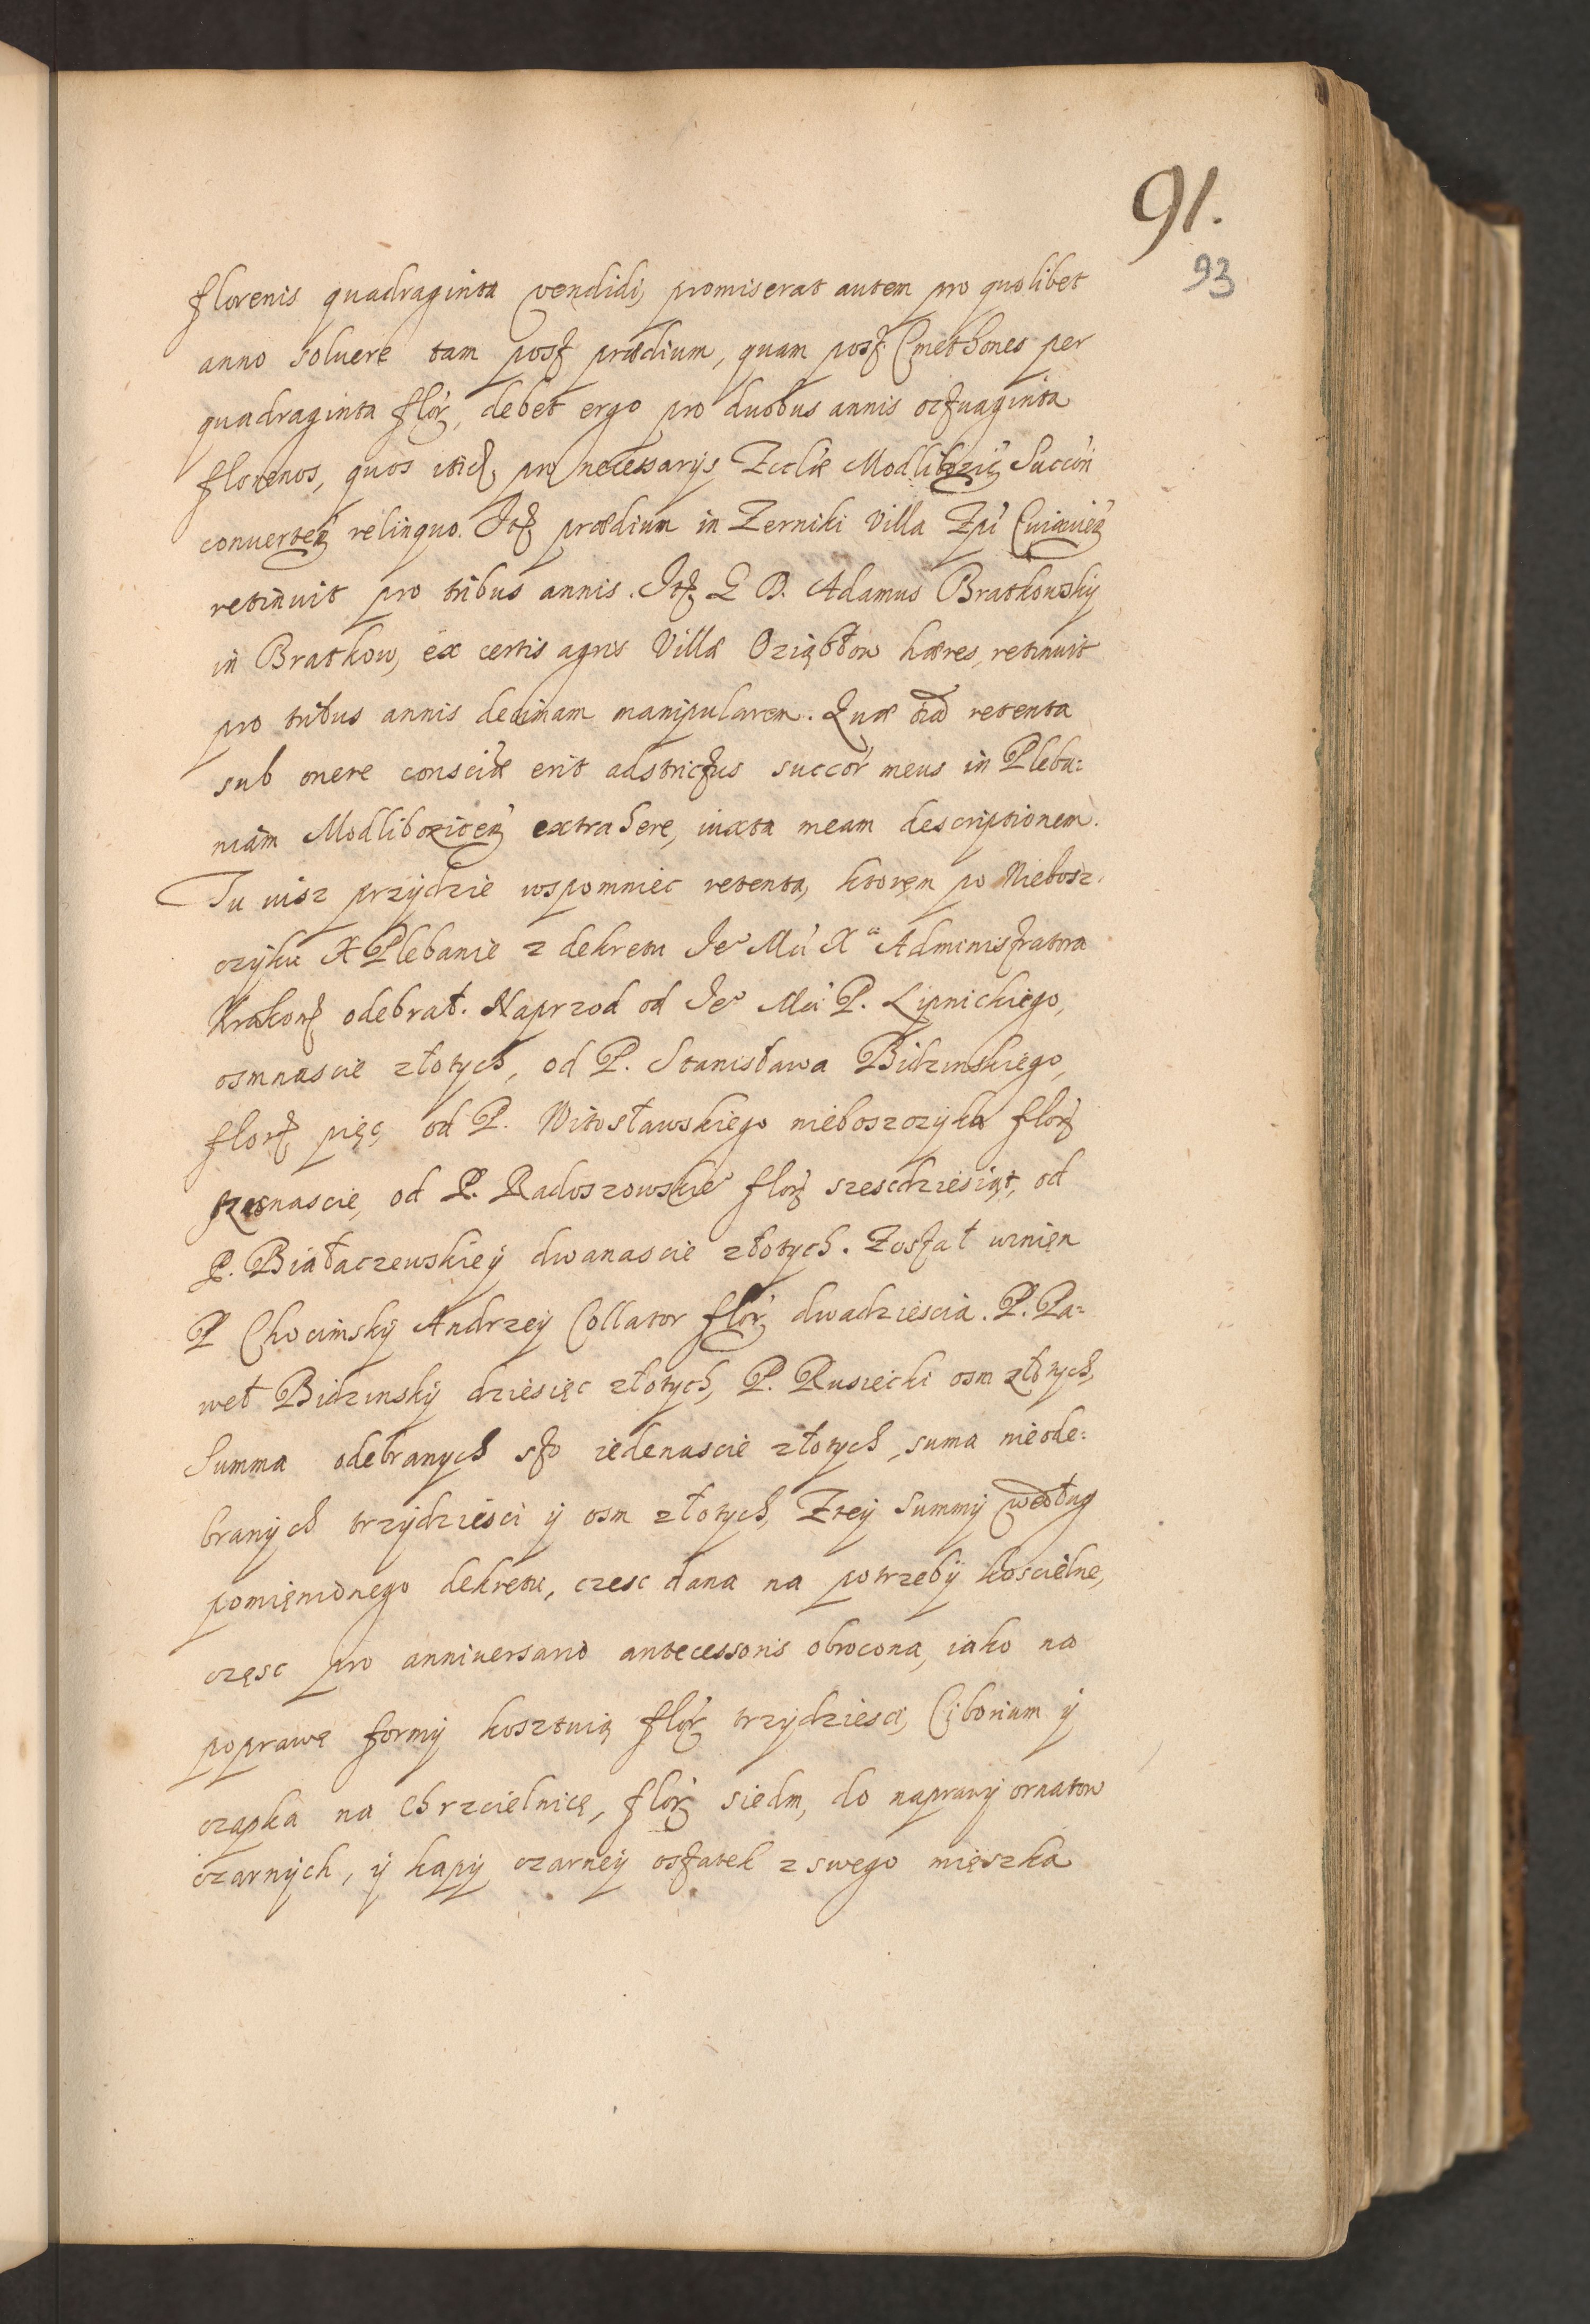 91.
93
florenis quadraginta vendidi, promiserat autem pro quolibet
anno soluere tam post prædium, quam post Cmethones per
quadraginta flor, debet ergo pro duobus annis octuaginta
florenos, quos pro necessarijs Eccliæ Modliboziċ Succōri
conuerteñ relinquo. Itē prædium in Zerniki Villa Epi Cuiauieñ
retinuit pro tribus annis. Itē G D. Adamus Bratkowskÿ
in Bratkow, ex certis agris Villæ Oziąbłow hæres, retinuit
pro tribus annis decimam manipularem. Quæ oīa retenta
sub onere consciæ erit adstrictus succōr meus in Plebu:
niam Modliboziceñ extrahere, iuxta meam descriptionem.
Tu iusz przÿdzie wspomniec retenta, ktoręm po Niebosz.
czÿku X Plebanie z dekretu Je° Mci Xª Administratora
Krakow odebrał. Naprzod od Je° Mci P. Lipnickiego,
osmnascie złotych, od P. Stanisława Bidzinskiego,
flor pięc, od P. Witosławskiego nieboszczÿka flor
szesnascie, od P. Radoszowskie° flor szescdziesiąt, od
P. Białaczewskieÿ dwanascie złotych. Został winięn
P Chocimskÿ Andrzeÿ Collator flor dwadziescia. P. Pa:
weł Bidzinskÿ dziesięc złotÿch, P. Rusiecki osm złotÿch,
Summa odebranÿch sto iedenascie złotych, suma nieode:
branÿch trzÿdziesci ÿ osm złotÿch, Zteÿ Summÿ według
pomięnionego dekretu, czesc dana na potrzebÿ koscielne,
częsc pro anniuersario antecessoris obrocona, iako na
poprawę formÿ kosztuią flor trzÿdziesci, Ciborium ÿ
czapka na Chrzcielnicę, flor siedm, do naprawÿ ornatow
czarnÿch, ÿ kapÿ czarneÿ ostatek z swego mięszka